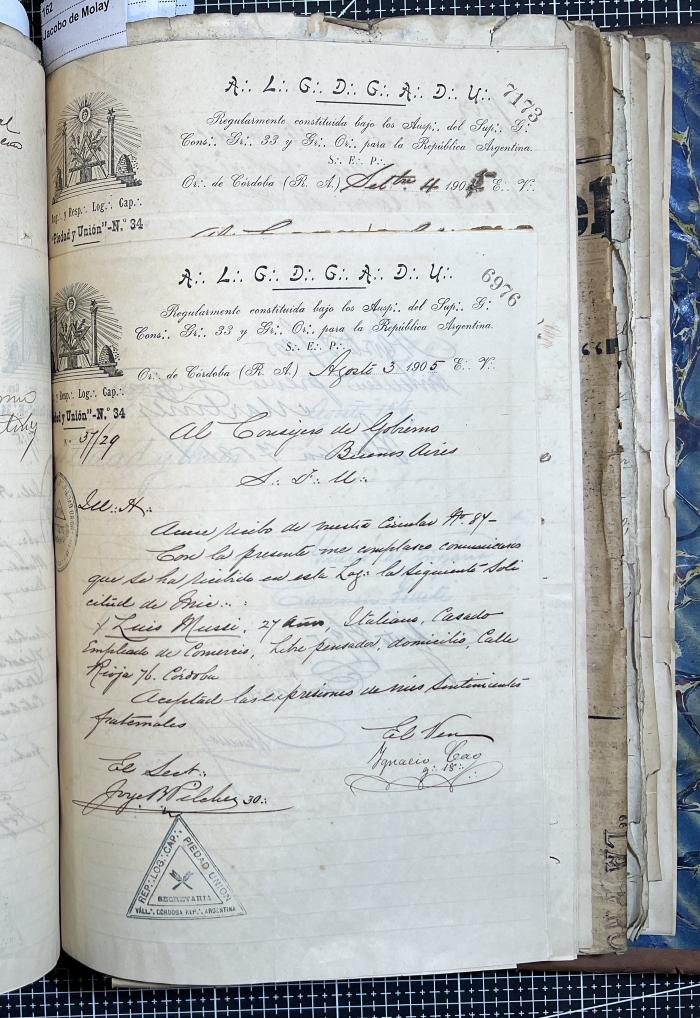 162
Jacobo de Molay
A∴ L∴ G∴ D∴ G∴ A∴ D∴ U∴
7173
Regularmente constituida bajo los Ausp∴ del Sup∴ G∴
Cons∴ Gr∴ 33 y Gr∴ Or∴ para la República Argentina.
S∴ E∴ P∴
Or∴ de Córdoba (R. A.) Setbre 4 1905 E∴ V∴
y Resp∴ Log∴ Cap∴
"Piedad y Unión"-N.º 34
A∴ L∴ G∴ D∴ G∴ A∴ D∴ U∴
6976
Regularmente constituida bajo los Ausp∴ del Sup∴ G∴
Cons∴ Gr∴ 33 y Gr∴ Or∴ para la República Argentina.
S∴ E∴ P∴
Or∴ de Córdoba (R. A.) Agosto 3 1905 E∴ V∴
y Resp∴ Log∴ Cap∴
dad y Unión"-N.º 34
37/29
Al Consejero de Gobierno
Buenos Aires
S∴ F∴ U∴
Ill∴ H∴
Acuse recibo de vuestra Circular Nº 84-
Con la presente me complasco comunicaros
que se ha recibido en esta Log∴ la siguiente Soli
citud de Inic∴
Luis Mussi, 27 años, Italiano, Casado
Empleado de Comercio, Libre pensador, domicilio, Calle
Rioja 76. Córdoba
Aceptad las expresiones de mis sentimientos
fraternales
El Ven
Ignacio Cao
g∴ 18∴
El Sect∴
Jorge B Pilcher 30∴
RESP∴ LOG∴ CAP∴ PIEDAD UNIÓN
SECRETARIA
VALL∴ CÓRDOBA REP∴ ARGENTINA